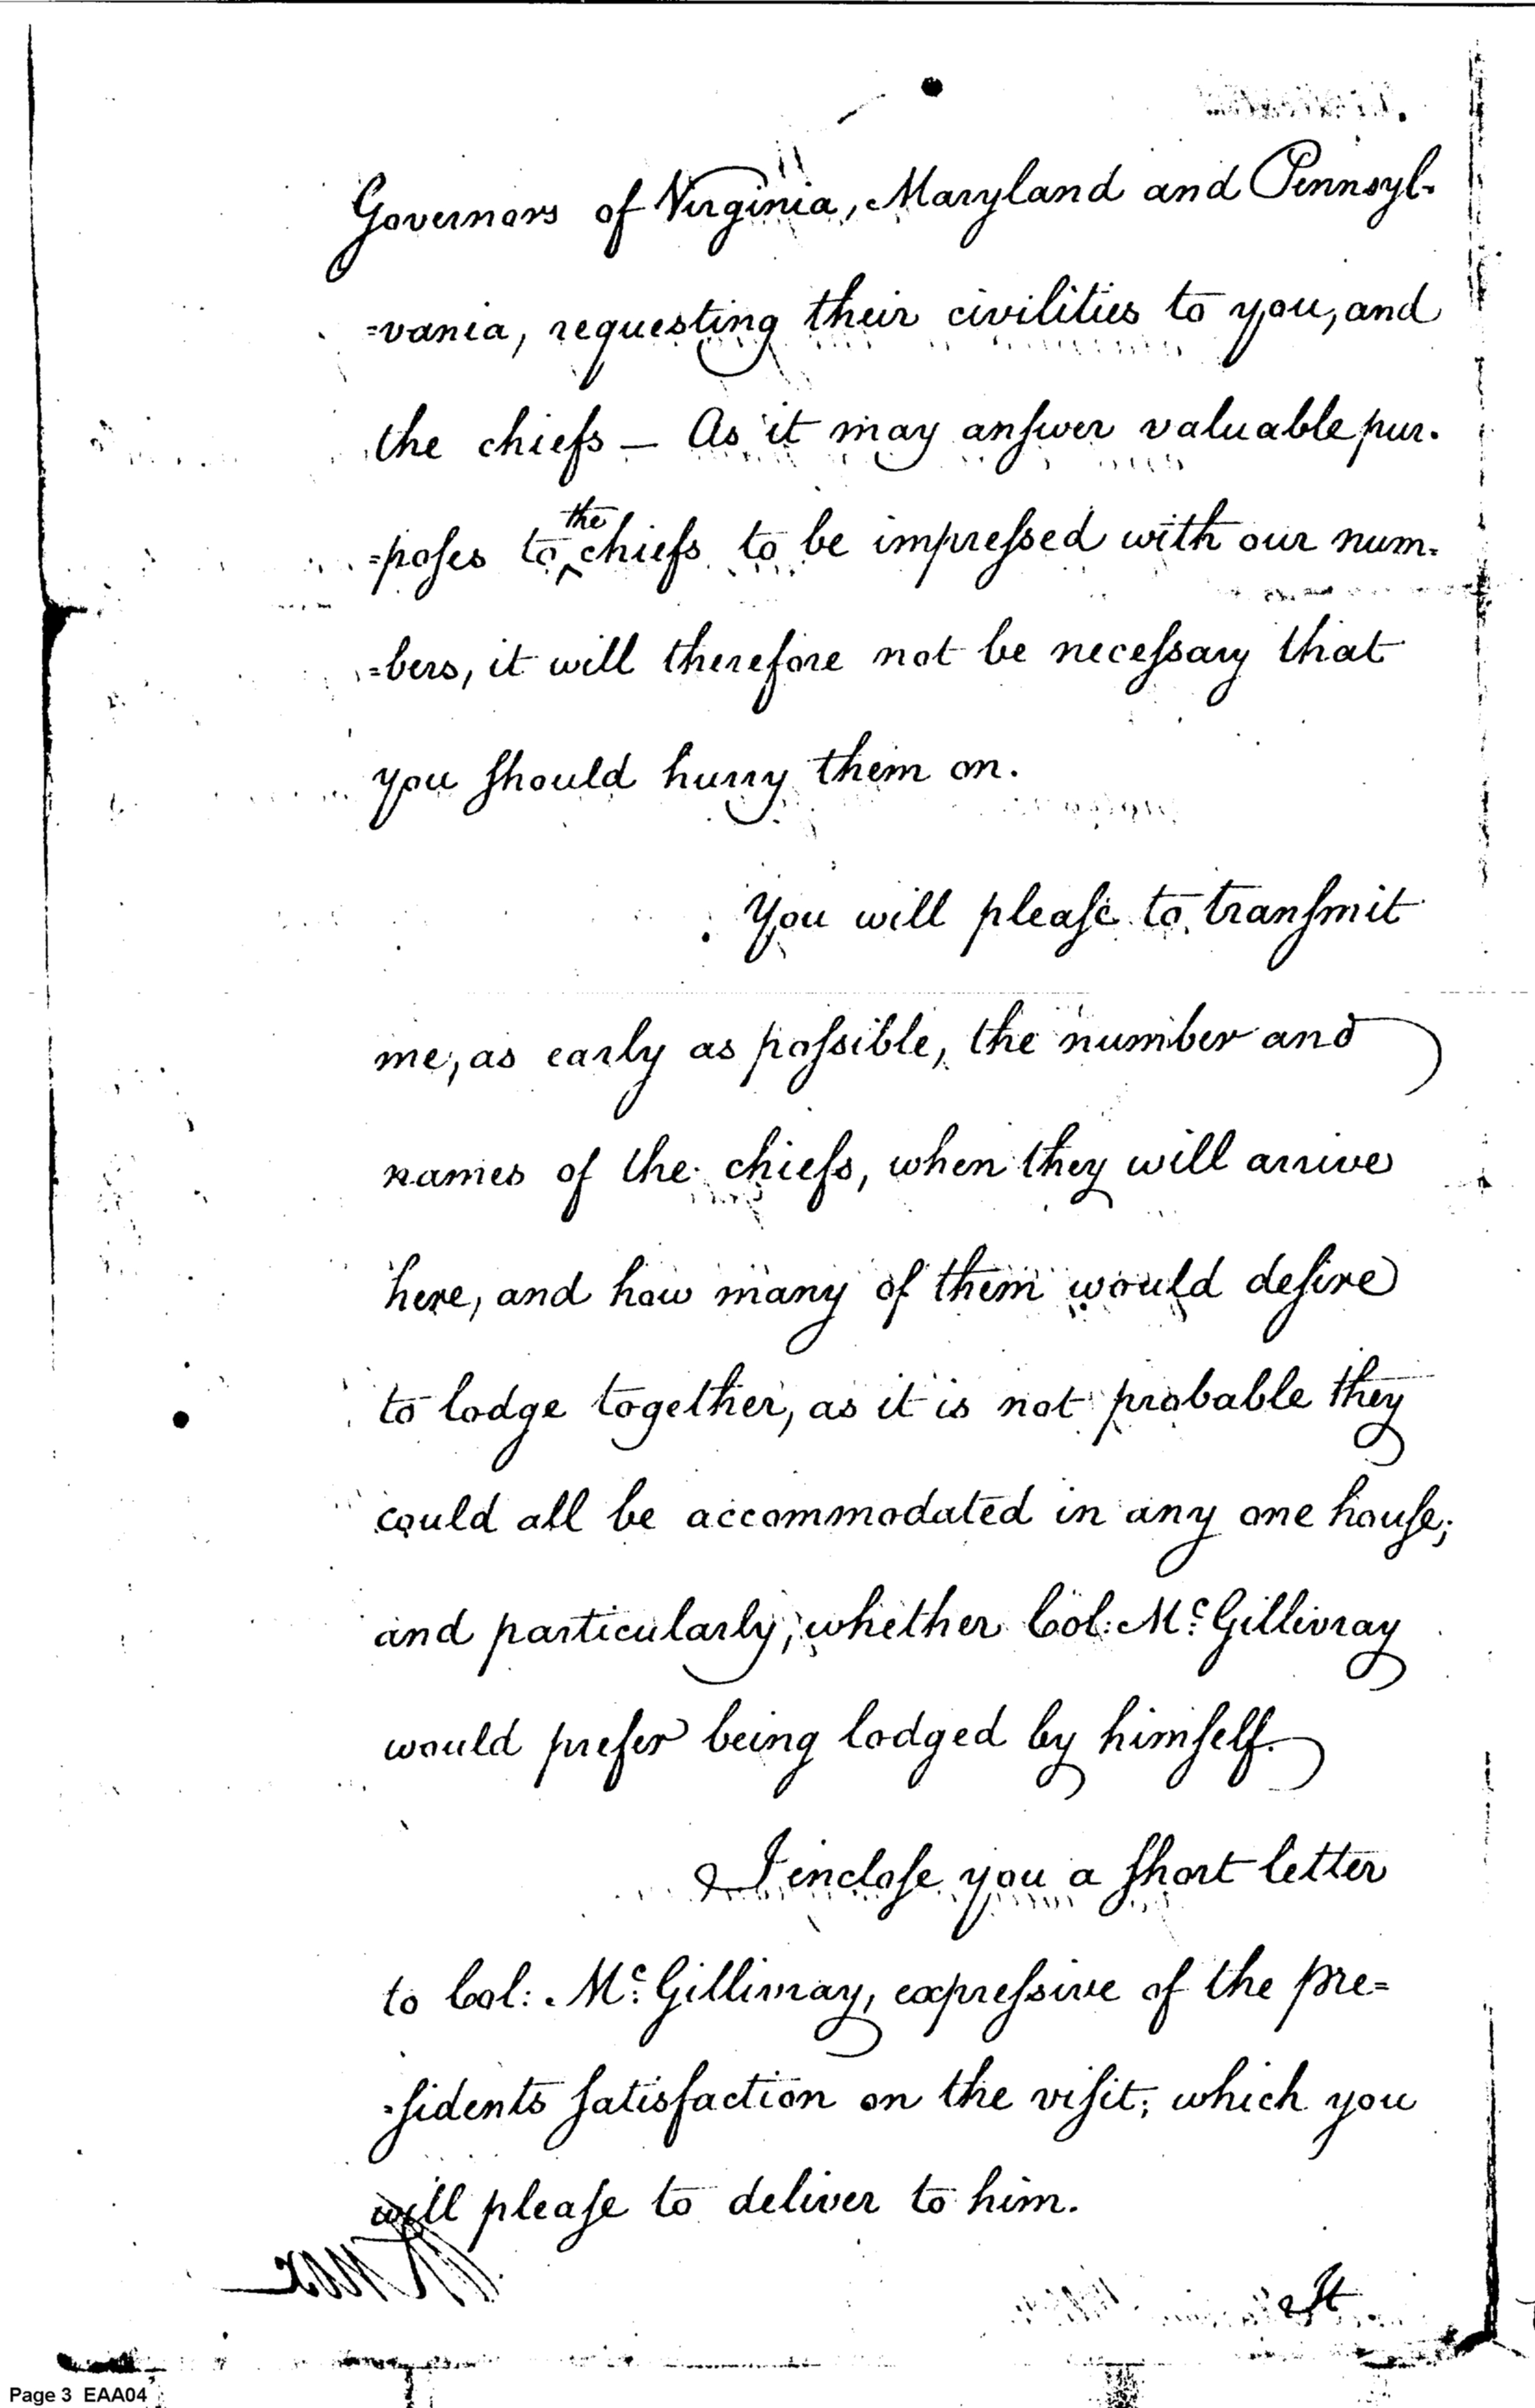 Governors of Virginia, Maryland and Pennsyl-
=vania, requesting their civilities to you, and
the chiefs — As it may answer valuable pur-
=poses to the chiefs to be impressed with our num-
=bers, it will therefore not be necessary that
you should hurry them on.
You will please to transmit
me, as early as possible, the number and
names of the chiefs, when they will arrive
here, and how many of them would desire
to lodge together, as it is not probable they
could all be accommodated in any one house;
and particularly, whether Col: Mc. Gillivray
would prefer being lodged by himself.
I inclose you a short letter
to Col: Mc. Gillivray, expressive of the pre=
=sidents satisfaction on the visit; which you
will please to deliver to him.
It
Page 3 EAA04